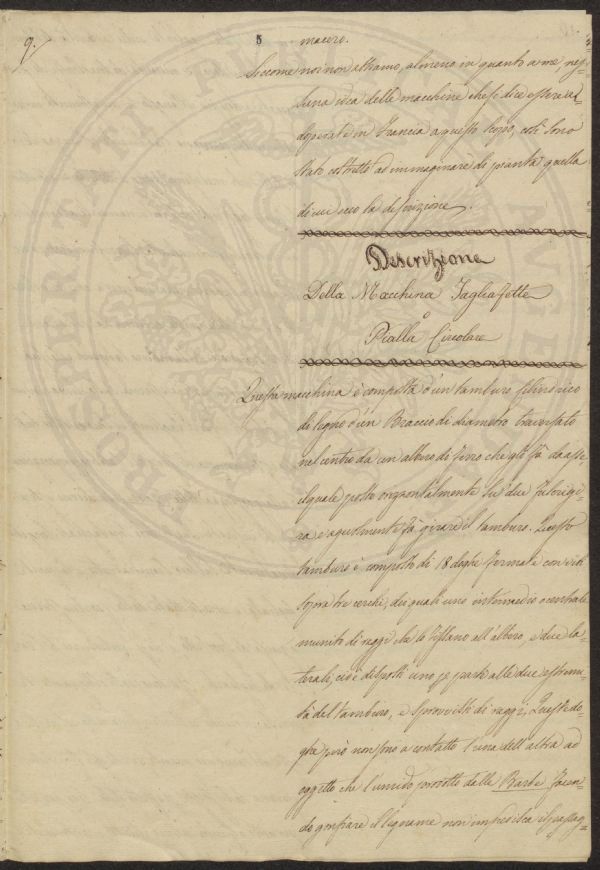 9.
5
macero.
Siccome noi non abbiamo, almeno in quanto a me, nes-
suna idea delle macchine che si dice essere ad
doperate in Francia a questo scopo, così sono
stato costretto ad immaginare di pianta quella
di cui ecco la descrizione.
Descrizione
Della Macchina Tagliafette
o
Pialla Circolare
Questa macchina è composta d'un tamburo cilindrico
di legno d'un Braccio di diametro traversato
nel centro da un albero di ferro che gli fà da asse
il quale posto orizontalmente su due
ra e agevolmente fà girare il tamburo. Questo
tamburo è composto di 18 doghe fermate con viti
sopra tre cerchi, dei quali uno intermedio o centrale
munito di raggi che lo fissano all'albero, e due la-
terali, cioè disposti uno per parte alle due estremi-
tà del tamburo, e sprovvisti di raggi. Queste do-
ghe però non sono a contatto l'una dell'altra ad
oggetto che l'umido prodotto dalle Barbe facen-
do gonfiare il legname non impedisca il passag-
PROSPERITATI
AUGE